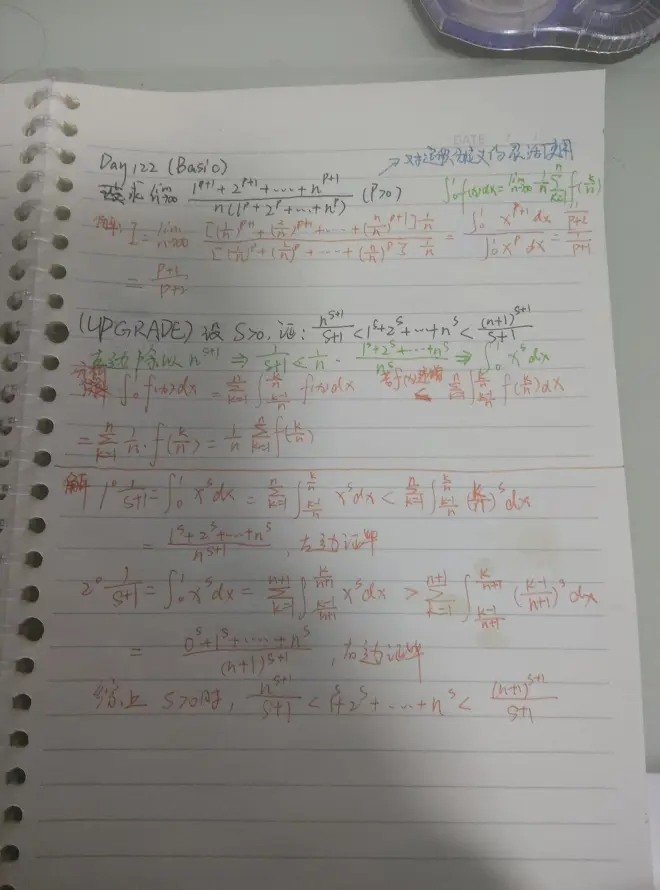 DATE
Day 122 (Basic)
→ 对定积分定义的灵活使用
求 lim_{n→∞} (1^{p+1} + 2^{p+1} + ⋯ + n^{p+1}) / (n(1^p + 2^p + ⋯ + n^p)) (p>0)
∫_0^1 f(x)dx = lim_{n→∞} 1/n Σ_{k=1}^n f(k/n)
解: I = lim_{n→∞} ([(1/n)^{p+1} + (2/n)^{p+1} + ⋯ + (n/n)^{p+1}] 1/n) / ([(1/n)^p + (2/n)^p + ⋯ + (n/n)^p] 1/n) = (∫_0^1 x^{p+1} dx) / (∫_0^1 x^p dx) = (1/(p+2)) / (1/(p+1))
= (p+1)/(p+2)
(UPGRADE) 设 S>0, 证: n^{s+1}/(s+1) < 1^s + 2^s + ⋯ + n^s < (n+1)^{s+1}/(s+1)
左边除以 n^{s+1} ⇒ 1/(s+1) < 1/n · (1^s + 2^s + ⋯ + n^s)/n^s ⇒ ∫_0^1 x^s dx
分析 ∫_0^1 f(x)dx = Σ_{k=1}^n ∫_{(k-1)/n}^{k/n} f(x)dx 若f(x)递增 < Σ_{k=1}^n ∫_{(k-1)/n}^{k/n} f(k/n)dx
= Σ_{k=1}^n 1/n · f(k/n) = 1/n Σ_{k=1}^n f(k/n)
解 1° 1/(s+1) = ∫_0^1 x^s dx = Σ_{k=1}^n ∫_{(k-1)/n}^{k/n} x^s dx < Σ_{k=1}^n ∫_{(k-1)/n}^{k/n} (k/n)^s dx
= (1^s + 2^s + ⋯ + n^s)/n^{s+1}, 左边证毕
2° 1/(s+1) = ∫_0^1 x^s dx = Σ_{k=1}^{n+1} ∫_{(k-1)/(n+1)}^{k/(n+1)} x^s dx > Σ_{k=1}^{n+1} ∫_{(k-1)/(n+1)}^{k/(n+1)} ((k-1)/(n+1))^s dx
= (0^s + 1^s + ⋯ + n^s)/(n+1)^{s+1}, 右边证毕
综上 S>0时, n^{s+1}/(s+1) < 1^s + 2^s + ⋯ + n^s < (n+1)^{s+1}/(s+1)